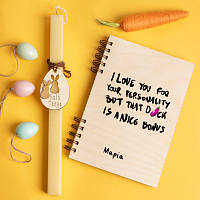 I LOVE YOU FOR
YOUR PERSONALITY
BUT THAT D CK
IS A NICE BONUS
Μαρία